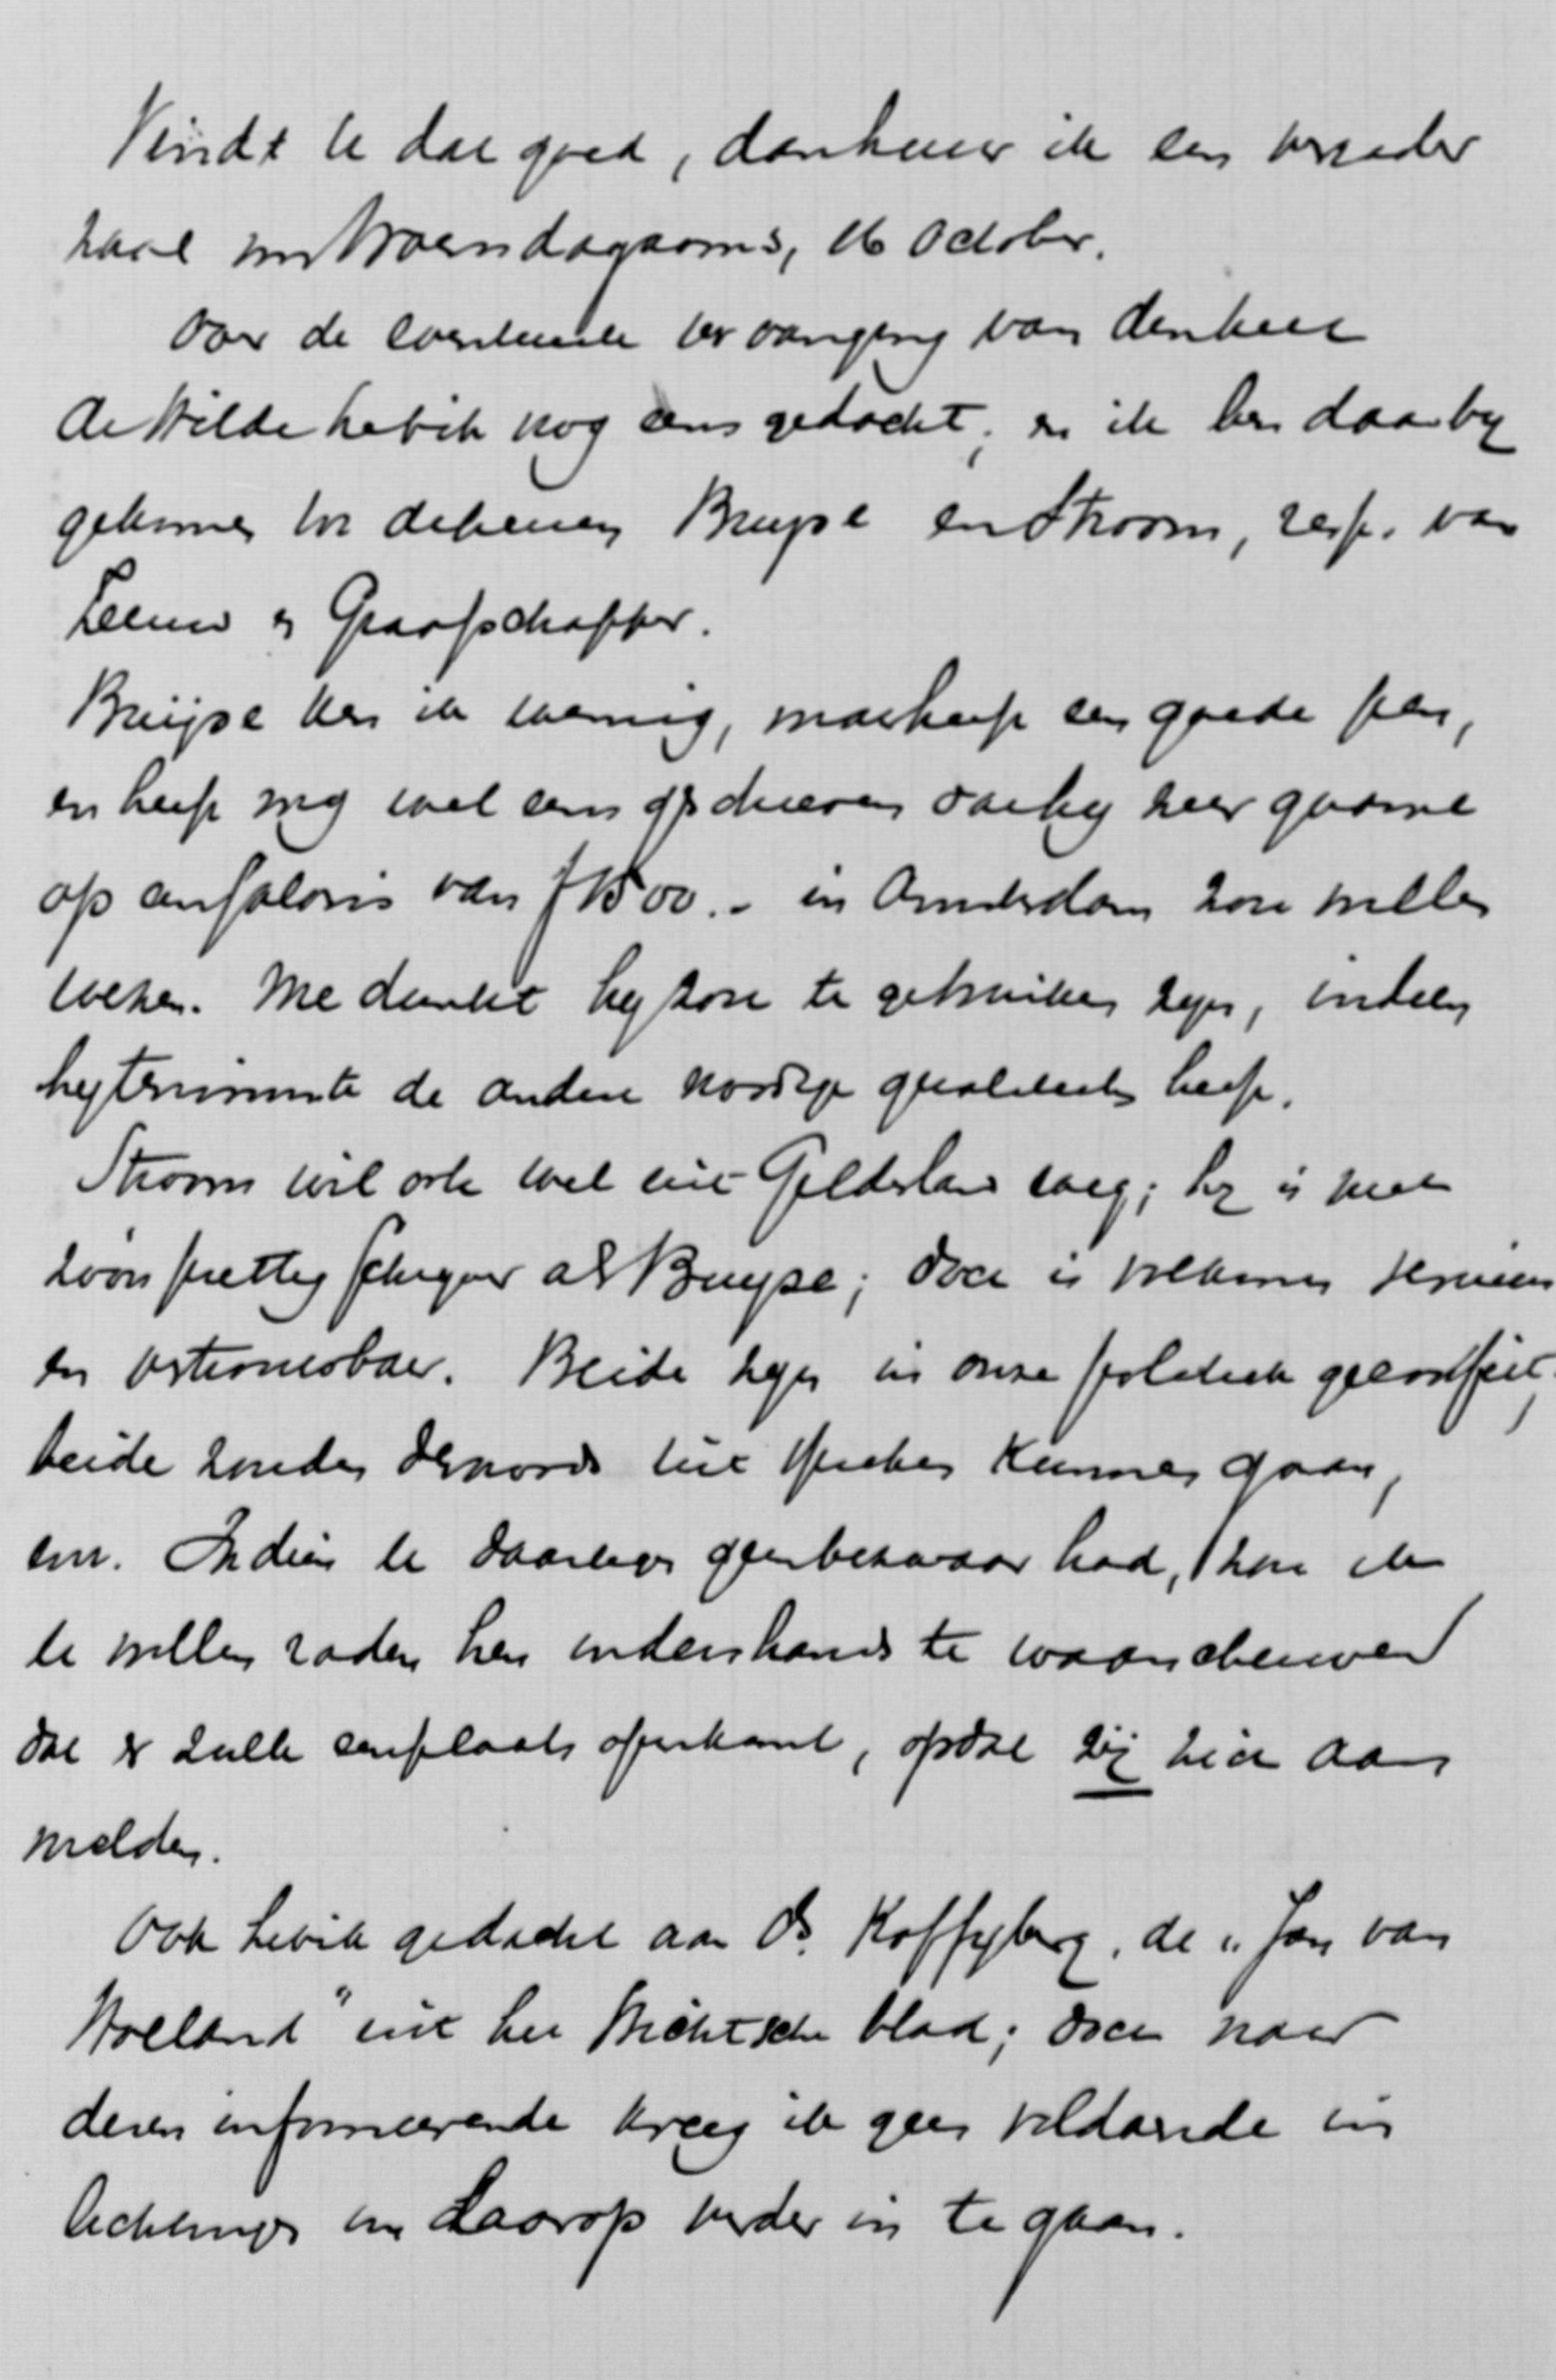 Vindt U dat goed, dan huur ik een beneden
zaal om Woensdagavond, 16 October.
Over de eventueele vervanging van den heer
de Wilde heb ik nog eens gedacht; en ik ben daarby
gekomen tot de heeren Bruyse en Stroom, resp. van
Leeuw en Graafschapper.
Bruijse ken ik weinig, maar heeft een goede pen,
en heeft my wel eens geschreven dat hy zeer gaarne
op een salaris van ƒ1500.- in Amsterdam zou willen
werken. Me dunkt hy zou te gebruiken zyn, indien
hy tenminste de andere noodige qualiteiten heeft.
Stroom wil ook wel uit Gelderland weg; hy is niet
zoo'n prettig schryver als Bruyse; doch is volkomen serieus
en betrouwbaar. Beide zyn in onze politiek geverseerd,
beide zouden desnoods uit spreken kunnen gaan,
enz. Indien U daartegen geen bezwaar had, zou ik
U willen raden hen onderhands te waarschuwen
dat er zulk een plaats openkomt, opdat zij zich aan
melden.
Ook heb ik gedacht aan Ds. Koffyberg, de „Jan van
Holland" uit het Utrechtsche blad; doch naar
dezen informeerende kreeg ik geen voldoende in
lichtingen om daarop verder in te gaan.